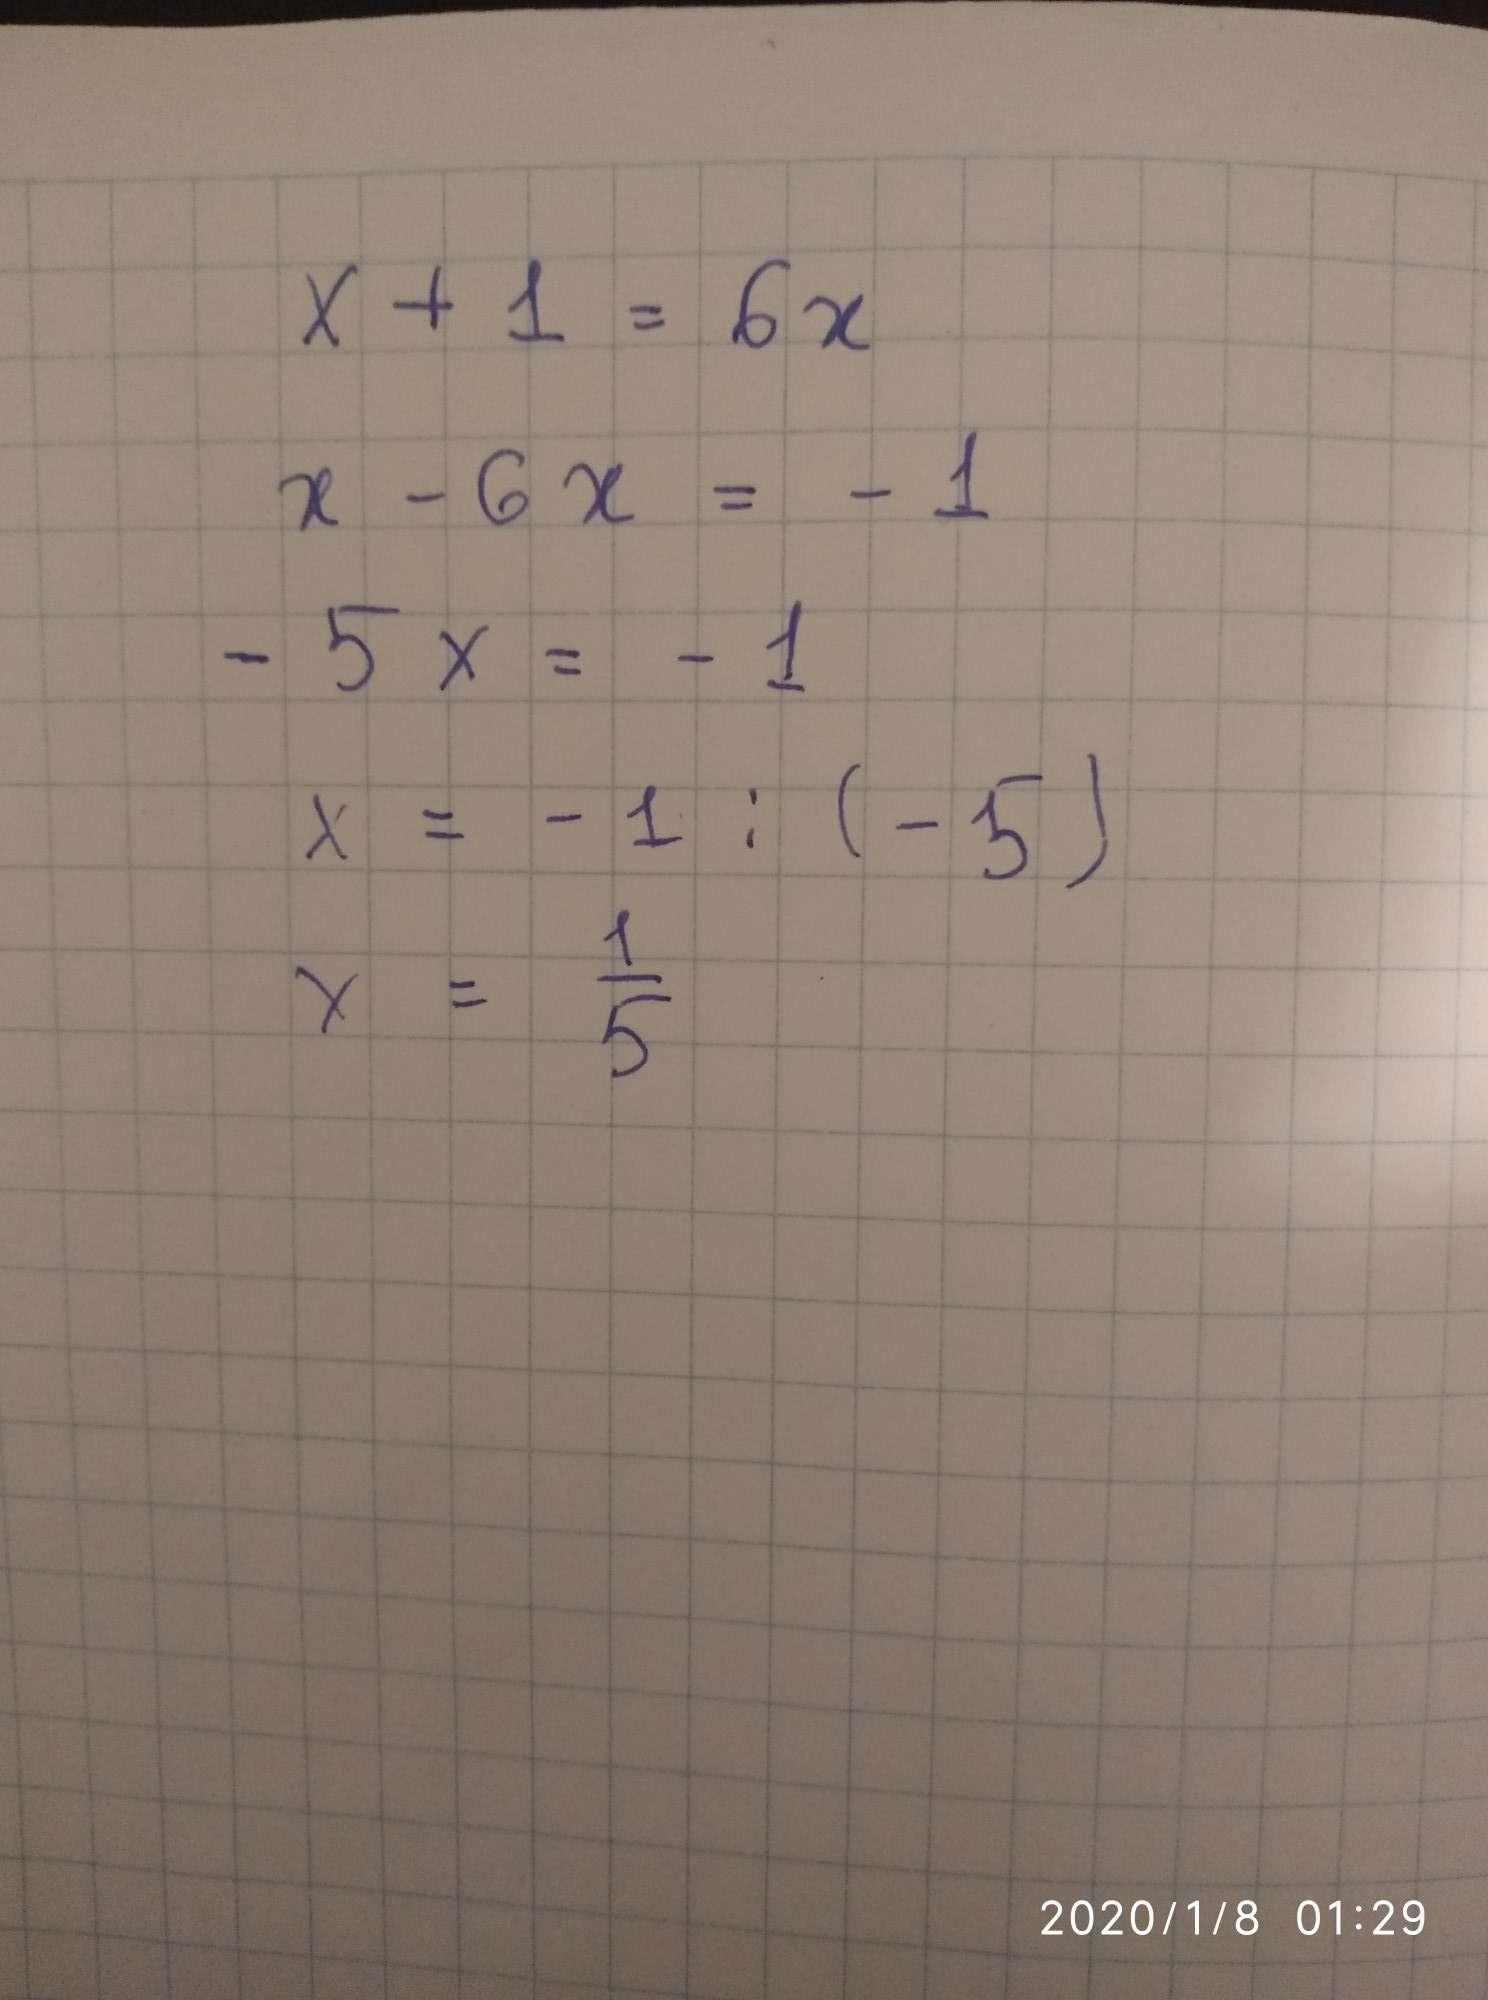 x + 1 = 6x
x - 6x = - 1
- 5x = - 1
x = - 1 : (- 5)
x = 1/5
2020/1/8 01:29